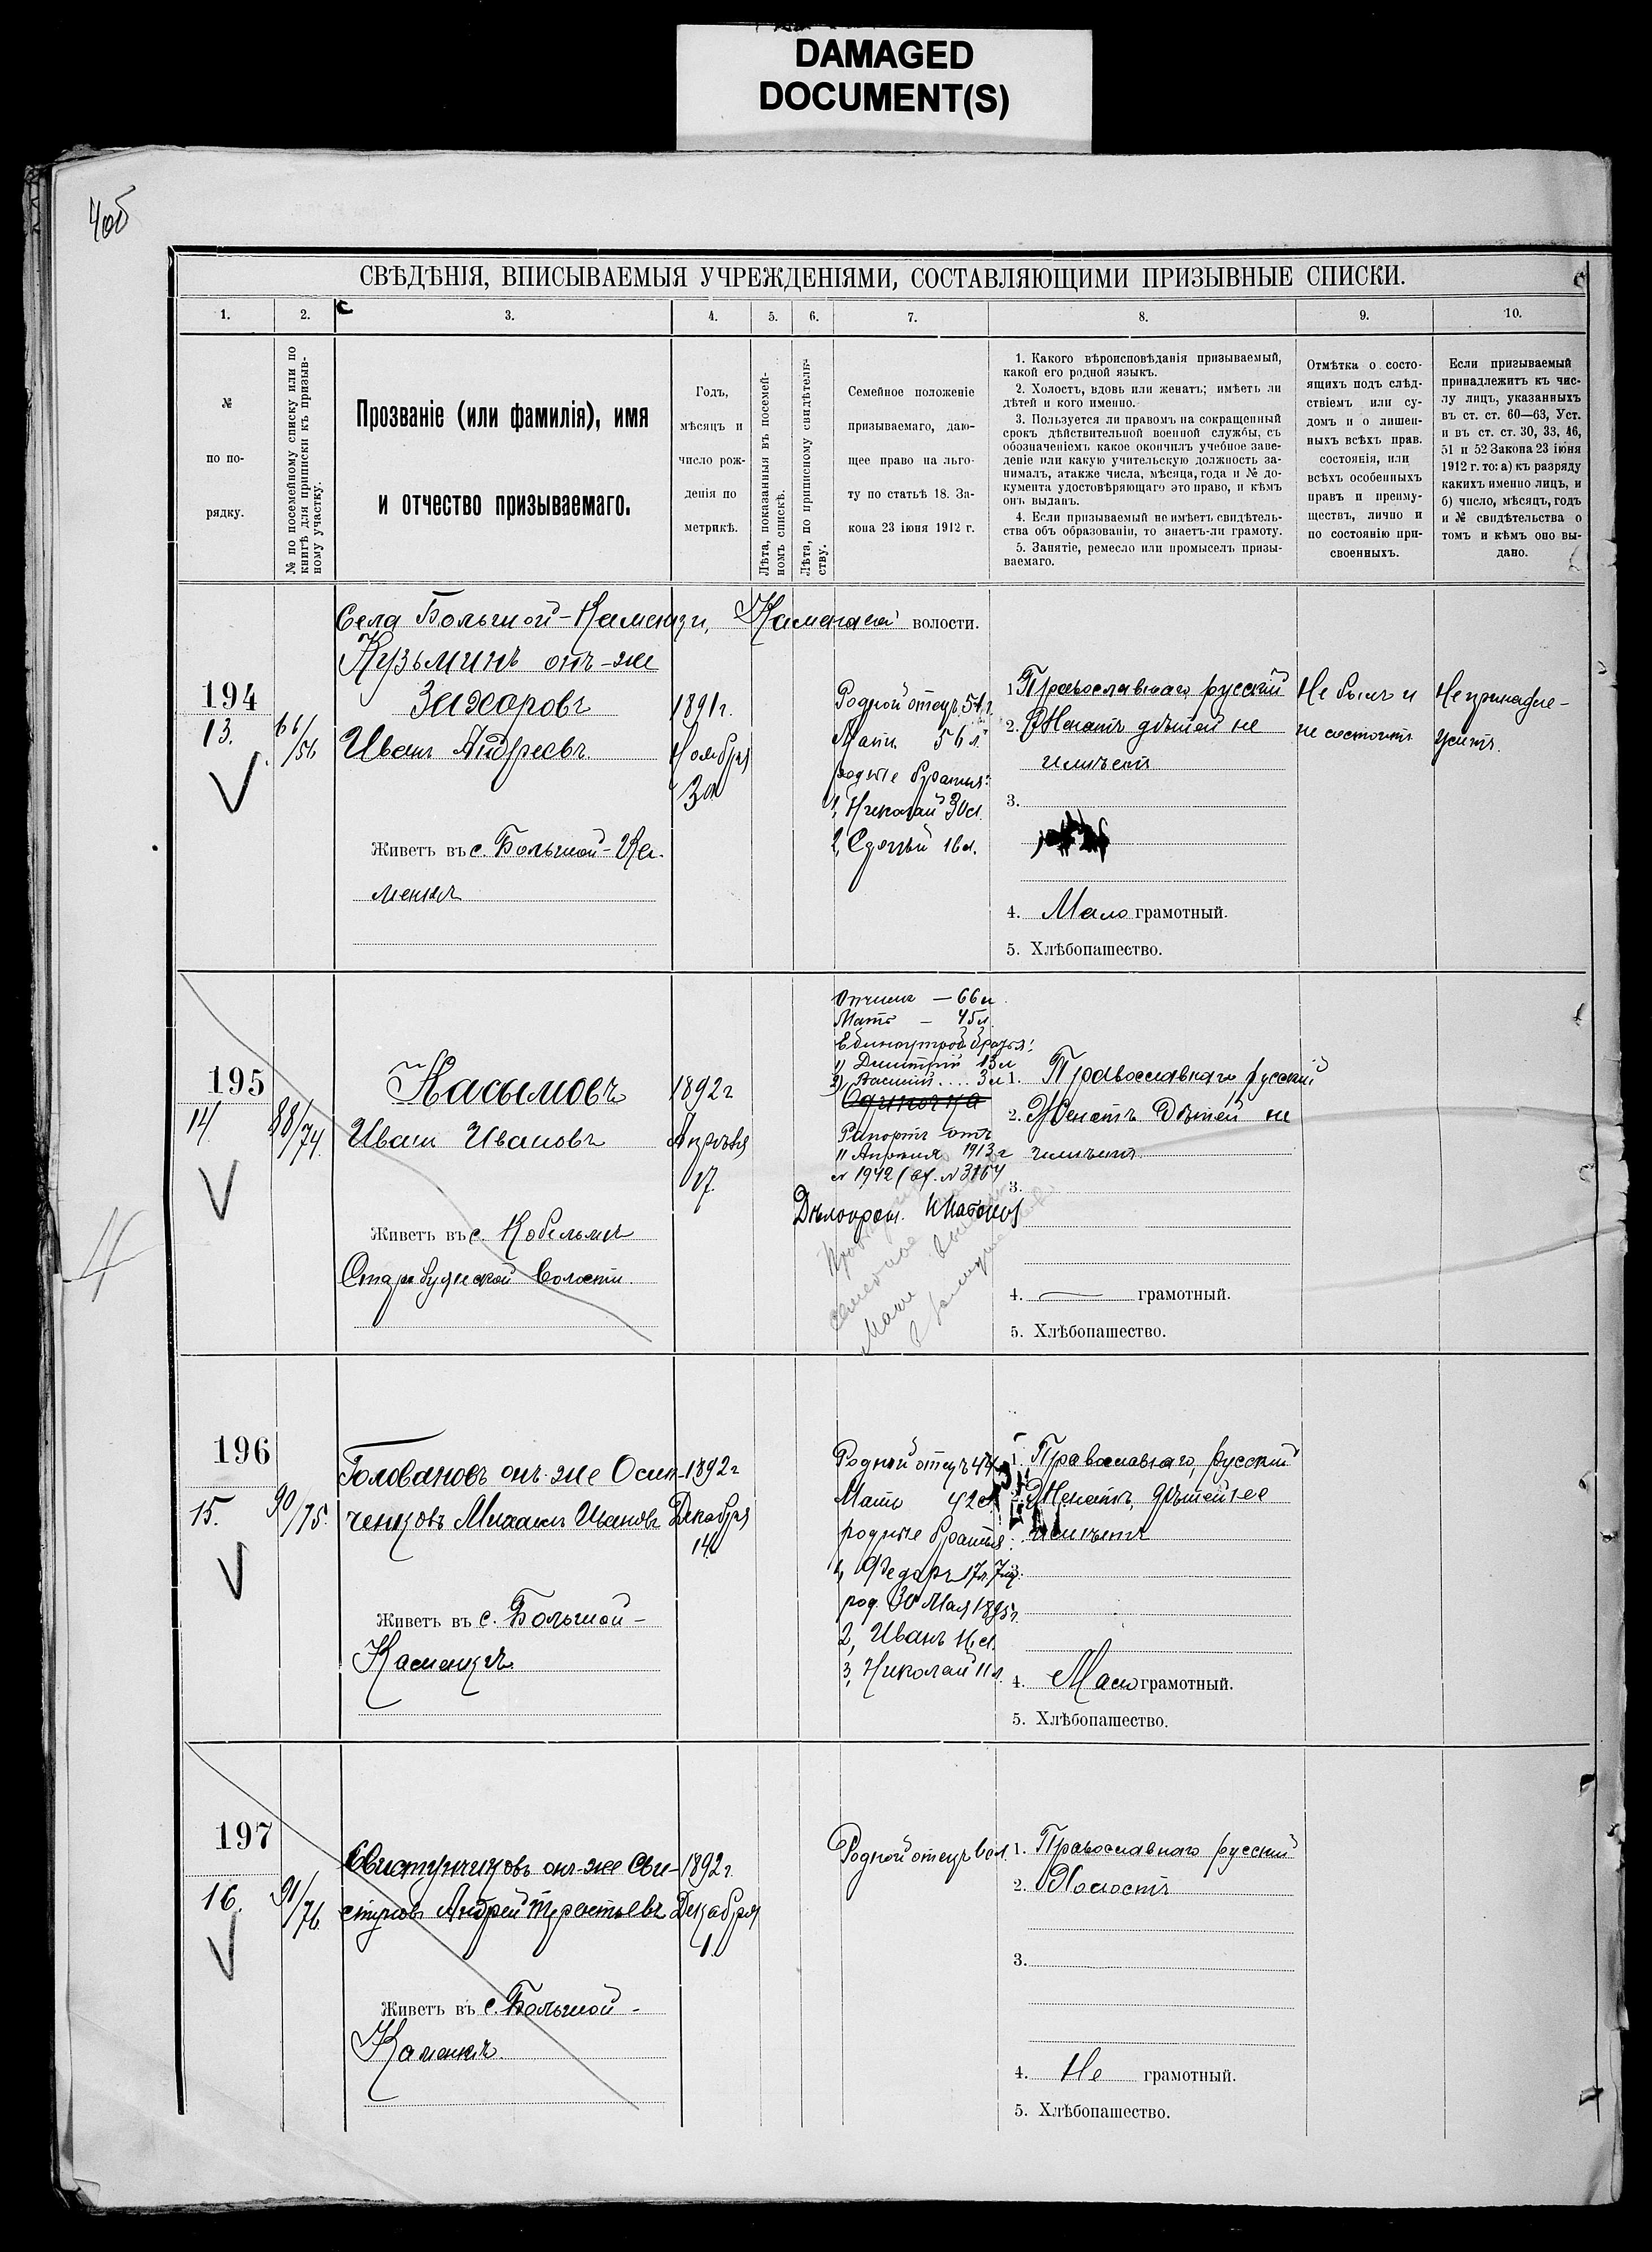 DAMAGED
DOCUMENT(S)
4об
СВѢДѢНІЯ, ВПИСЫВАЕМЫЯ УЧРЕЖДЕНІЯМИ, СОСТАВЛЯЮЩИМИ ПРИЗЫВНЫЕ СПИСКИ.
1. 2. 3. 4. 5. 6. 7. 8. 9. 10.
№
по по-
рядку.
№ по посемейному списку или по
книгѣ для приписки къ призыв-
ному участку.
Прозваніе (или фамилія), имя
и отчество призываемаго.
Годъ,
мѣсяцъ и
число рож-
денія по
метрикѣ.
Лѣта, показанныя въ посемей-
номъ спискѣ.
Лѣта, по приписному свидѣтель-
ству.
Семейное положеніе
призываемаго, даю-
щее право на льго-
ту по статьѣ 18. За-
кона 23 іюня 1912 г.
1. Какого вѣроисповѣданія призываемый,
какой его родной языкъ.
2. Холостъ, вдовъ или женатъ; имѣетъ ли
дѣтей и кого именно.
3. Пользуется ли правомъ на сокращенный
срокъ дѣйствительной военной службы, съ
обозначеніемъ какое окончилъ учебное заве-
деніе или какую учительскую должность за-
нималъ, атакже числа, мѣсяца, года и № до-
кумента удостовѣряющаго это право, и кѣмъ
онъ выданъ.
4. Если призываемый не имѣетъ свидѣтель-
ства объ образованіи, то знаетъ-ли грамоту.
5. Занятіе, ремесло или промыселъ призы-
ваемаго.
Отмѣтка о состо-
ящихъ подъ слѣд-
ствіемъ или су-
домъ и о лишен-
ныхъ всѣхъ прав.
состоянія, или
всѣхъ особенныхъ
правъ и преиму-
ществъ, лично и
по состоянію при-
своенныхъ.
Если призываемый
принадлежитъ къ чис-
лу лицъ, указанныхъ
въ ст. ст. 60—63, Уст.
и въ ст. ст. 30, 33, 46,
51 и 52 Закона 23 іюня
1912 г. то: а) къ разряду
какихъ именно лицъ, и
б) число, мѣсяцъ, годъ
и № свидѣтельства о
томъ и кѣмъ оно вы-
дано.
Села Большой-Каменки, Каменской волости.
194
13.
66/56
Кузьминъ онъ-же
Захаровъ
Иванъ Андреевъ
Живетъ въ с. Большой-Ка-
менкѣ
1891г.
Ноября
3
Родной отецъ 54 г.
Мать 56 л.
родные братья:
1, Николай 30 л.
2, Сергѣй 16 л.
1. Православнаго русскій
2. Женатъ дѣтей не
имѣетъ
3.
4. Мало грамотный.
5. Хлѣбопашество.
Не былъ и
не состоитъ
Не принадле-
житъ.
195
14
88/74.
Касымовъ
Иванъ Ивановъ
Живетъ въ с. Кобельмѣ
Старобуянской волости.
1892г
Апрѣля
17.
Отчимъ — 66 л
Мать — 45 л
Единоутроб. братья:
1) Дмитрій 13 л
2) Василій .... 3 л
Одиночка
Рапортъ отъ
11 Апрѣля 1913 г
№ 1942 (вх. № 3164
Дѣлопроиз.
1. Православнаго русскій
2. Женатъ дѣтей не
имѣетъ.
3.
4. грамотный.
5. Хлѣбопашество.
196
15.
90/75.
Головановъ онъ-же Осип-
ченковъ Михаилъ Ивановъ
Живетъ въ с. Большой-
Каменкѣ
1892г
Декабря
14
Родной отецъ 44
Мать 42 л
родные братья:
1, Федоръ 17 л. 7 м.
род. 30 Мая 1895 г.
2, Иванъ
3, Николай 11 л.
1. Православнаго, русскій
2. Женатъ, дѣтей не
имѣетъ
3.
4. Мало грамотный.
5. Хлѣбопашество.
197
16.
91/76
Свистунчиковъ онъ-же Сви-
стуновъ Андрей Терентьевъ
Живетъ въ с. Большой-
Каменкѣ.
1892г
Декабря
1.
Родной отецъ
1. Православнаго русскій
2. Холостъ
3.
4. Не грамотный.
5. Хлѣбопашество.